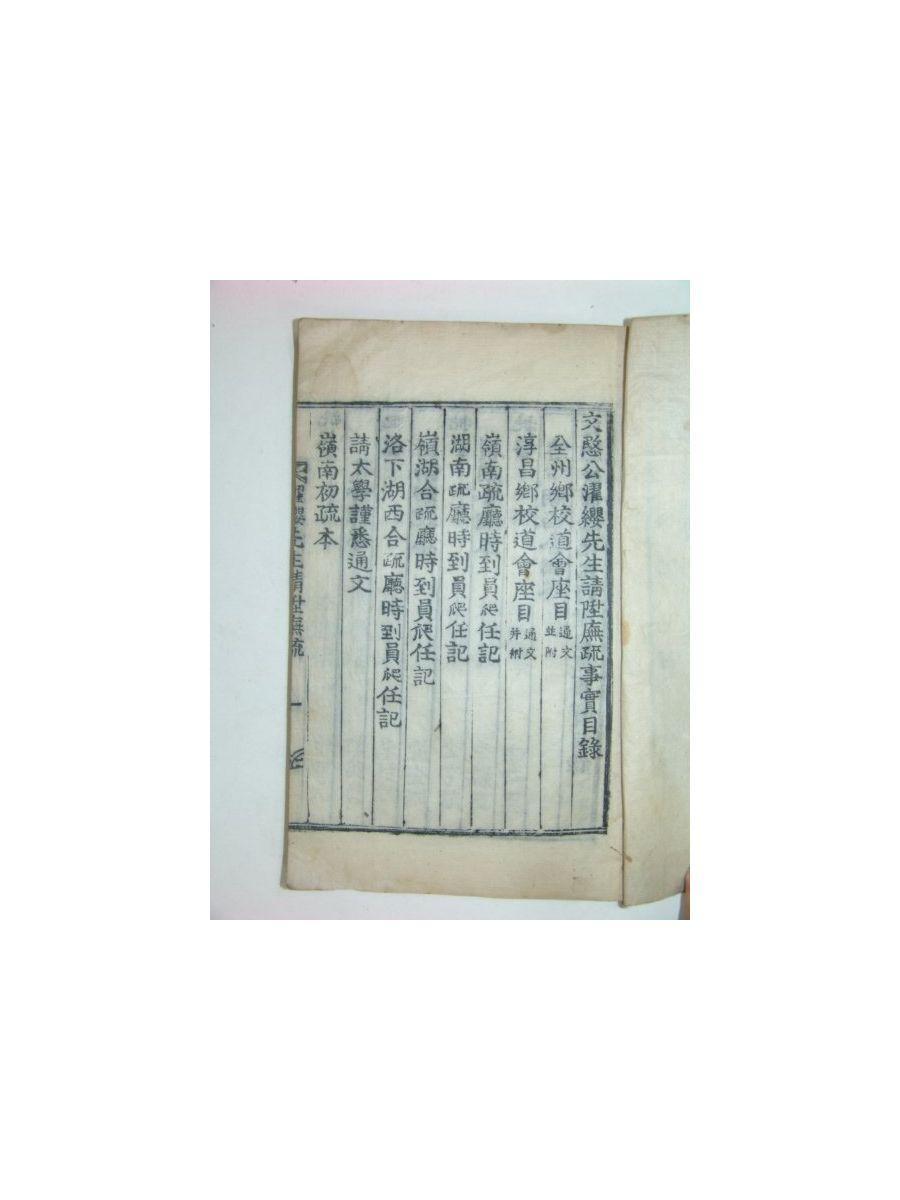 文愍公濯纓先生請陞廡疏事實目錄
全州鄉校道會座目 通文並附
淳昌鄉校道會座目 通文并附
嶺南疏廳時到員爬任記
湖南疏廳時到員爬任記
嶺湖合疏廳時到員爬任記
洛下湖西合疏廳時到員爬任記
請太學謹悉通文
嶺南初疏本
濯纓先生請陞廡疏
一